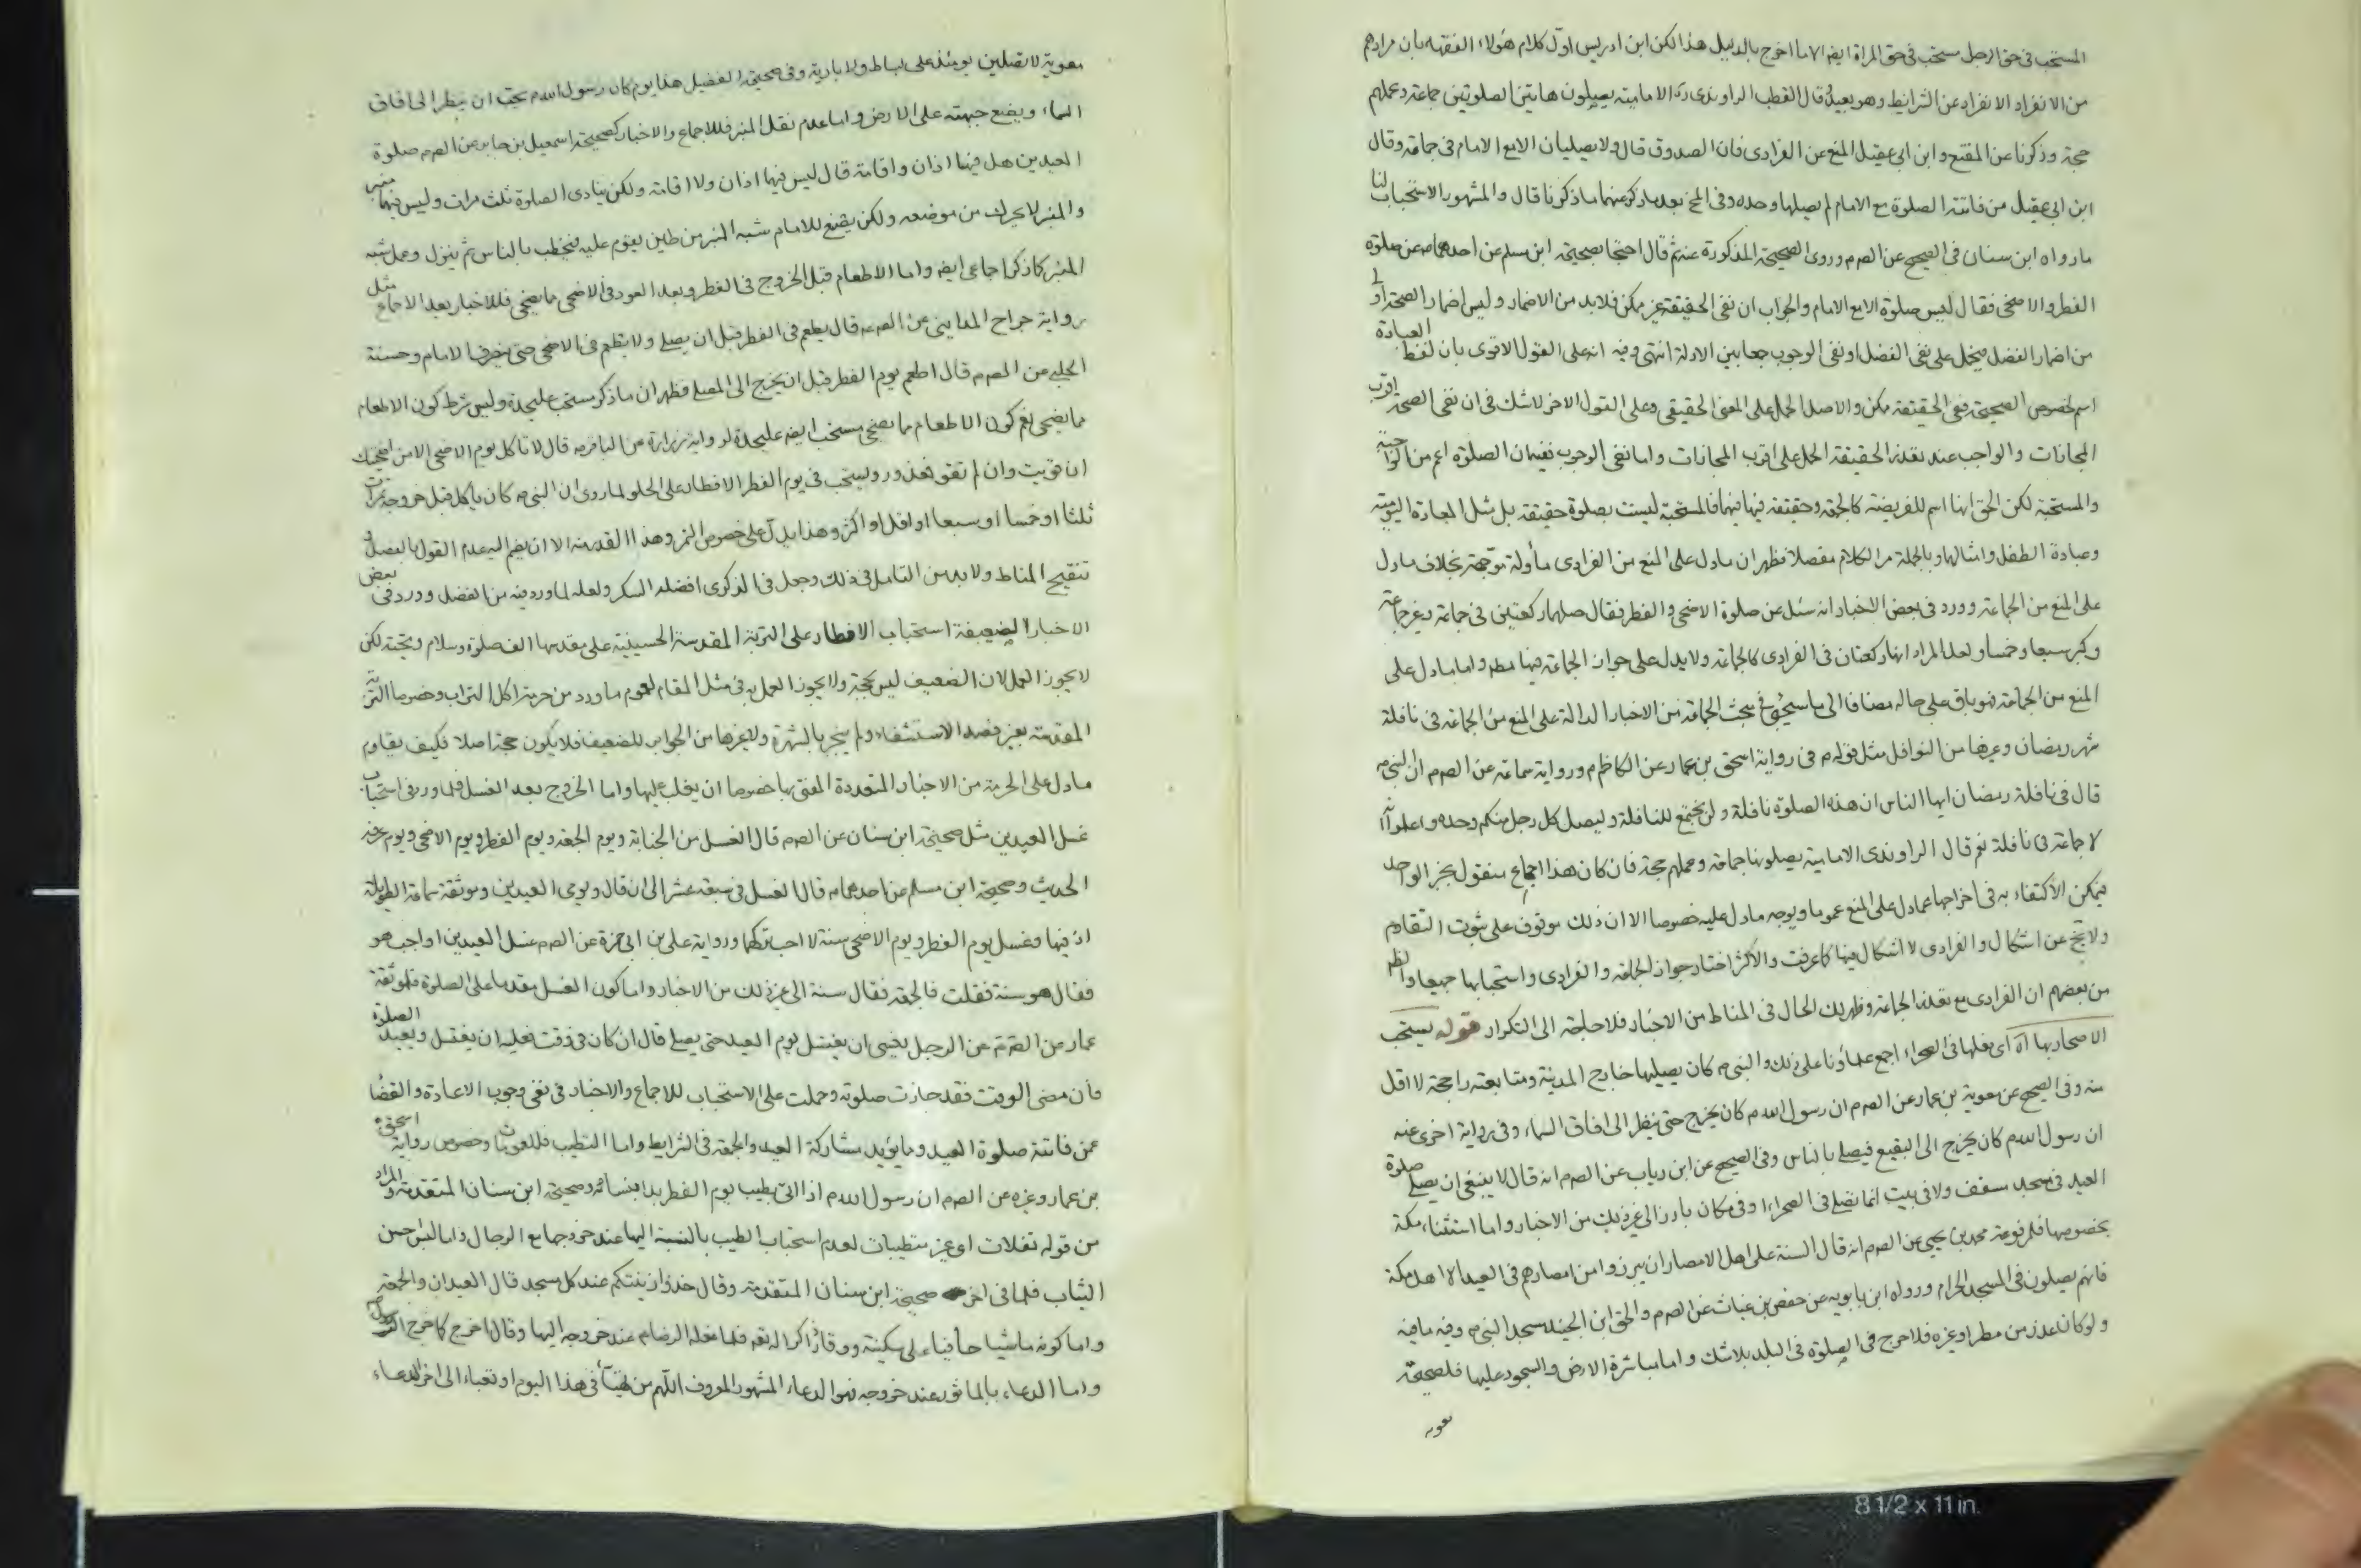 المستحب فى حق الرجل مستحب فى حق المراة ايضا الا ما اخرج بالدليل هذا لكن ابن ادريس اوّل كلام هؤلاء الفقهاء بان مرادهم
من الانفراد الانفراد عن الشرايط وهو بعيد وقال القطب الراوندى ره الامامية يصلون هاتين الصلوتين جماعة وعملهم
حجة وذكرنا عن المقنع وابن ابى عقيل المنع عن الفرادى فان الصدوق قال ولا يصليان الا مع الامام فى جماعة وقال
ابن ابى عقيل من فاتته الصلوة مع الامام لم يصلها وحده وفى المخ بعد ما ذكر عنهما ما ذكرنا قال والمشهور الاستحباب لنا
ما رواه ابن سنان فى الصحيح عن الصم وروى الصحيحة المذكورة عنه ثم قال احتجا بصحيحة ابن مسلم عن احدهما عن صلوة
الفطر والاضحى فقال ليس صلوة الا مع الامام والجواب ان نفى الحقيقة غير ممكن فلا بد من الاضمار وليس اضمار الصحة اولى
من اضمار الفضل فيحمل على نفى الفضل او نفى الوجوب جمعا بين الادلة انتهى وفيه انه على القول الاقوى بان لفظ العبادة
اسم لخصوص الصحيحة نفى الحقيقة ممكن والاصل الحمل على المعنى الحقيقى وعلى القول الاخر لا شك فى ان نفى الصحة اقرب
المجازات والواجب عند تعذر الحقيقة الحمل على اقرب المجازات واما نفى الوجوب ففيه ان الصلوة اعم من الواجبة
والمستحبة لكن الحق انها اسم للفريضة كالجمعة وحقيقة فيها فيهما فالمستحبة ليست بصلوة حقيقة بل مثل المعادة اليومية
وعبادة الطفل وامثالها وبالجملة مر الكلام مفصلا فظهر ان ما دل على المنع من الفرادى مأولة متوجهة بخلاف ما دل
على المنع من الجماعة وورد فى بعض الاخبار انه سئل عن صلوة الاضحى والفطر فقال صلهما ركعتين فى جماعة وغير جماعة
وكبر سبعا وخمسا ولعل المراد انها ركعتان فى الفرادى كالجماعة ولا يدل على جواز الجماعة فيها مطم واما ما دل على
المنع من الجماعة فهو باق على حاله مضافا الى ما سيجئ فى مبحث الجماعة من الاخبار الدالة على المنع من الجماعة فى نافلة
شهر رمضان وغيرها من النوافل مثل قوله م فى رواية اسحق بن عمار عن الكاظم م ورواية سماعة عن الصم ان النبى ص
قال فى نافلة رمضان ايها الناس ان هذه الصلوة نافلة ولن يجتمع للنافلة وليصل كل رجل منكم وحده واعلموا انه
لا جماعة فى نافلة نعم قال الراوندى الامامية يصلونها جماعة وعملهم حجة فان كان هذا اجماع منقول بخبر الواحد
فيمكن الاكتفاء به فى اخراجها عما دل على المنع عموما ويوجه ما دل عليه خصوصا الا ان ذلك موقوف على ثبوت التقاوم
ولا يخ عن اشكال والفرادى لا اشكال فيها كما عرفت والاكثر اختار جواز الجماعة والفرادى واستحبابها جميعا والظ
من بعضهم ان الفرادى مع تعذر الجماعة وظهر لك الحال فى المناط من الاخبار فلا حاجة الى التكرار قوله يستحب
الاصحار بها اه اى فعلها فى الصحراء اجمع علماؤنا على ذلك والنبى ص كان يصليها خارج المدينة ومتابعته راجحة لا اقل
منه وفى الصحيح عن معوية بن عمار عن الصم ان رسول الله ص كان يخرج حتى ينظر الى افاق السماء وفى رواية اخرى عنه
ان رسول الله ص كان يخرج الى البقيع فيصلى بالناس وفى الصحيح عن ابن رياب عن الصم انه قال لا ينبغى ان يصلى صلوة
العيد فى مسجد مسقف ولا فى بيت انما تصلى فى الصحراء او فى مكان بارز الى غير ذلك من الاخبار واما استثناء مكة
بخصوصها فلمرفوعة محمد بن يحيى عن الصم انه قال السنة على اهل الامصار ان يبرزوا من امصارهم فى العيد الا اهل مكة
فانهم يصلون فى المسجد الحرام ورواه ابن بابويه عن حفص بن غياث عن الصم والحق ابن الجنيد مسجد النبى ص وفيه ما فيه
ولو كان عذر من مطر او غيره فلا حرج فى الصلوة فى البلد بلا شك واما مباشرة الارض والسجود عليها فلصحيحة
معوية
معوية لا تصلين يومئذ على بساط ولا بارية وفى صحيحة الفضيل هذا يوم كان رسول الله ص يحب ان ينظر الى افاق
السماء ويضع جبهته على الارض واما عدم نقل المنبر فللاجماع والاخبار كصحيحة اسمعيل بن جابر عن الصم صلوة
العيدين هل فيهما اذان واقامة قال ليس فيهما اذان ولا اقامة ولكن ينادى الصلوة ثلث مرات وليس فيهما منبر
والمنبر لا يحرك من موضعه ولكن يصنع للامام شبه المنبر من طين يقوم عليه فيخطب بالناس ثم ينزل وعمل شبه
المنبر كما ذكر اجماعى ايضا واما الاطعام قبل الخروج فى الفطر وبعد العود فى الاضحى مما يضحى فللاخبار بعد الاجماع مثل
رواية جراح المداينى عن الصم قال يطعم فى الفطر قبل ان يصلى ولا يطعم فى الاضحى حتى ينصرف الامام وحسنة
الحلبى عن الصم قال اطعم يوم الفطر قبل ان يخرج الى المصلى فظهر ان ما ذكر مستحب عليحدة وليس شرط كون الاطعام
مما يضحى نعم كون الاطعام مما يضحى مستحب ايضا عليحدة لرواية زرارة عن الباقر م قال لا تأكل يوم الاضحى الا من اضحيتك
ان قويت وان لم تقو فمعذور ويستحب فى يوم الفطر الافطار على الحلو لما روى ان النبى ص كان يأكل قبل خروجه تمرات
ثلثا او خمسا او سبعا او اقل او اكثر وهذا يدل على خصوص التمر وهذا القدر منه الا ان يضم اليه عدم القول بالفصل و
تنقيح المناط ولا بد من التامل فى ذلك وجعل فى الذكرى افضله السكر ولعله لما ورد فيه من الفضل وورد فى بعض
الاخبار الضعيفة استحباب الافطار على التربة المقدسة الحسينية على مقدسها الف صلوة وسلام وتحية لكن
لا يجوز العمل لان الضعيف ليس بحجة ولا يجوز العمل به فى مثل المقام لعموم ما ورد من حرمة اكل التراب وخصوصا التربة
المقدسة بغير قصد الاستشفاء ولم ينجبر بالشهرة ولا غيرها من الجوابر للضعيف فلا يكون حجة اصلا فكيف يقاوم
ما دل على الحرمة من الاخبار المتعددة المفتى بها خصوصا ان يغلب عليها واما الخروج بعد الغسل فلما ورد فى استحباب
غسل العيدين مثل صحيحة ابن سنان عن الصم قال الغسل من الجنابة ويوم الجمعة ويوم الفطر ويوم الاضحى ويوم عرفة
الحديث وصحيحة ابن مسلم عن احدهما م قال الغسل فى سبعة عشر الى ان قال ويومى العيدين وموثقة سماعة الطويلة
اذ فيها وغسل يوم الفطر ويوم الاضحى سنة لا احب تركهما ورواية على بن ابى حمزة عن الصم غسل العيدين اواجب هو
فقال هو سنة فقلت فالجمعة فقال سنة الى غير ذلك من الاخبار واما كون الغسل مقدما على الصلوة فلموثقة
عمار عن الصم عن الرجل ينسى ان يغتسل يوم العيد حتى يصلى قال ان كان فى وقت فعليه ان يغتسل ويعيد الصلوة
وان مضى الوقت فقد جازت صلوته وحملت على الاستحباب للاجماع والاخبار فى نفى وجوب الاعادة والقضاء
عمن فاتته صلوة العيد ومما يؤيد مشاركة العيد والجمعة فى الشرايط واما التطيب فللعمومات وخصوص رواية اسحق
بن عمار وغيره عن الصم ان رسول الله ص اذا اتى بطيب يوم الفطر بدا بنسائه وصحيحة ابن سنان المتقدمة والمراد
من قوله تفلات اى غير متطيبات لعدم استحباب الطيب بالنسبة اليها عند خروجها مع الرجال واما لبس احسن
الثياب فلما فى اخر صحيحة ابن سنان المتقدمة وقال خذوا زينتكم عند كل مسجد قال العيدان والجمعة
واما كونه ماشيا حافيا على سكينة ووقار ذاكرا لله تعه فلما فعله الرضا م عند خروجه اليها وقال اخرج كما خرج الرسول ص
واما الدعاء بالماثور عند خروجه فهو الدعاء المشهور المعروف اللهم من تهيأ فى هذا اليوم او تعبا الى اخر الدعاء